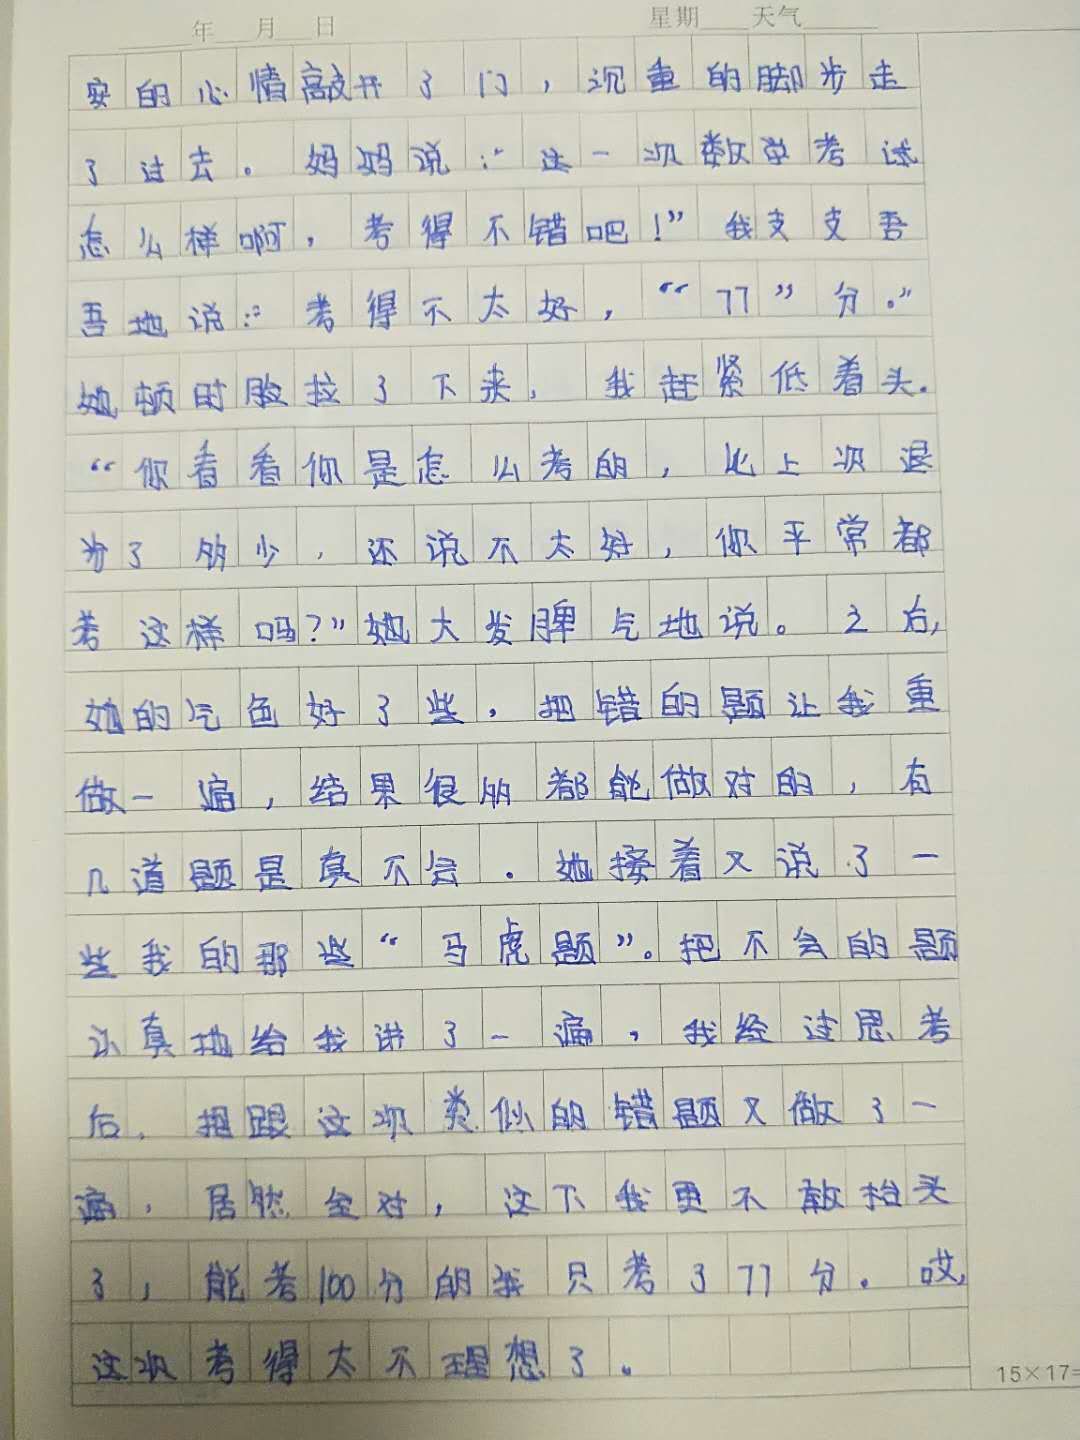 年 月 日 星期 天气
安的心情敲开了门，沉重的脚步走
了过去。妈妈说：“这一次数学考试
怎么样啊，考得不错吧！”我支支吾
吾地说：“考得不太好，“77”分。”
她顿时脸拉了下来，我赶紧低着头.
“你看看你是怎么考的，比上次退
步了多少，还说不太好，你平常都
考这样吗？”她大发脾气地说。之后，
她的气色好了些，把错的题让我重
做一遍，结果很多都能做对的，有
几道题是真不会．她接着又说了一
些我的那些“马虎题”。把不会的题
认真地给我讲了一遍，我经过思考
后，把跟这次类似的错题又做了一
遍，居然全对，这下我更不敢抬头
了，能考100分的我只考了77分。哎，
这次考得太不理想了。
15×17=